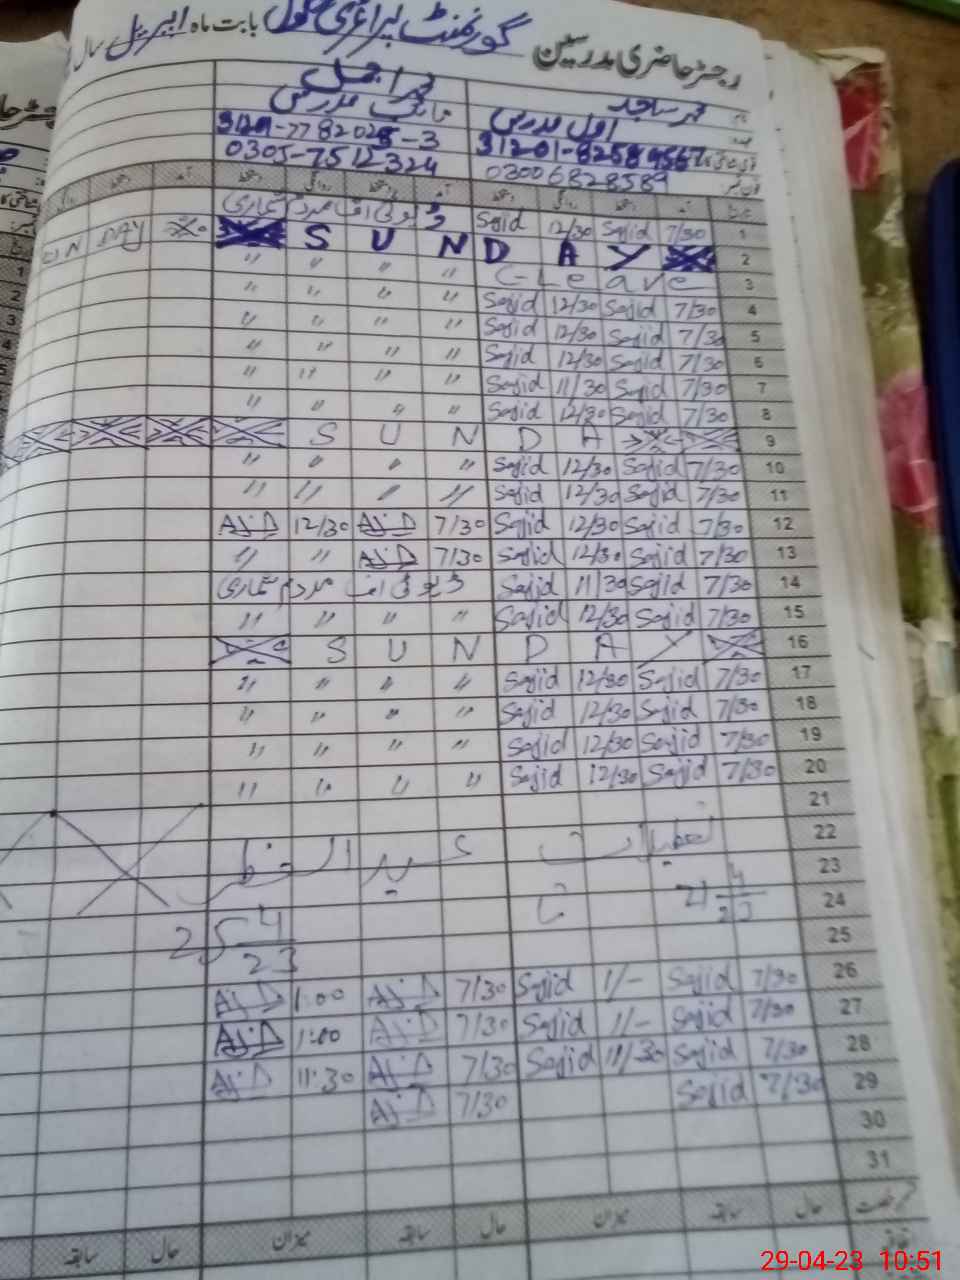 رجسٹر حاضری مدرسین گورنمنٹ پرائمری سکول بابت ماہ اپریل سال
محمد ساجد
اول مدرس
0300 6828589
0305-7512324
1 7/30 Sajid 12/30 Sajid
2 S U N D A Y
3 C-Leave " " " "
4 7/30 Sajid 12/30 Sajid " " " "
5 7/30 Sajid 12/30 Sajid " " " "
6 7/30 Sajid 12/30 Sajid " " " "
7 7/30 Sajid 11/30 Sajid " " " "
8 7/30 Sajid 12/30 Sajid " " " "
9 S U N D A
10 7/30 Sajid 12/30 Sajid " " " "
11 7/30 Sajid 12/30 Sajid " " " "
12 7/30 Sajid 12/30 Sajid 7/30 AJiD 12/30 AJiD
13 7/30 Sajid 12/30 Sajid 7/30 AJiD " "
14 7/30 Sajid 11/30 Sajid ڈیوٹی اف مردم شماری
15 7/30 Sajid 12/30 Sajid " " " "
16 S U N D A Y
17 7/30 Sajid 12/30 Sajid " " " "
18 7/30 Sajid 12/30 Sajid " " " "
19 7/30 Sajid 12/30 Sajid " " " "
20 7/30 Sajid 12/30 Sajid " " " "
21
22
23 تعطیلات عید الفطر
24
25 25 4 23
26 7/30 Sajid 1/- Sajid 7/30 AJiD 1:00 AJiD
27 7/30 Sajid 1/- Sajid 7/30 AJiD 1:00 AJiD
28 7/30 Sajid 11/30 Sajid 7/30 AJiD 11:30 AJiD
29 7/30 Sajid 7/30 AJiD
30
31
حال سابقہ میزان حال سابقہ میزان حال سابقہ
29-04-23 10:51